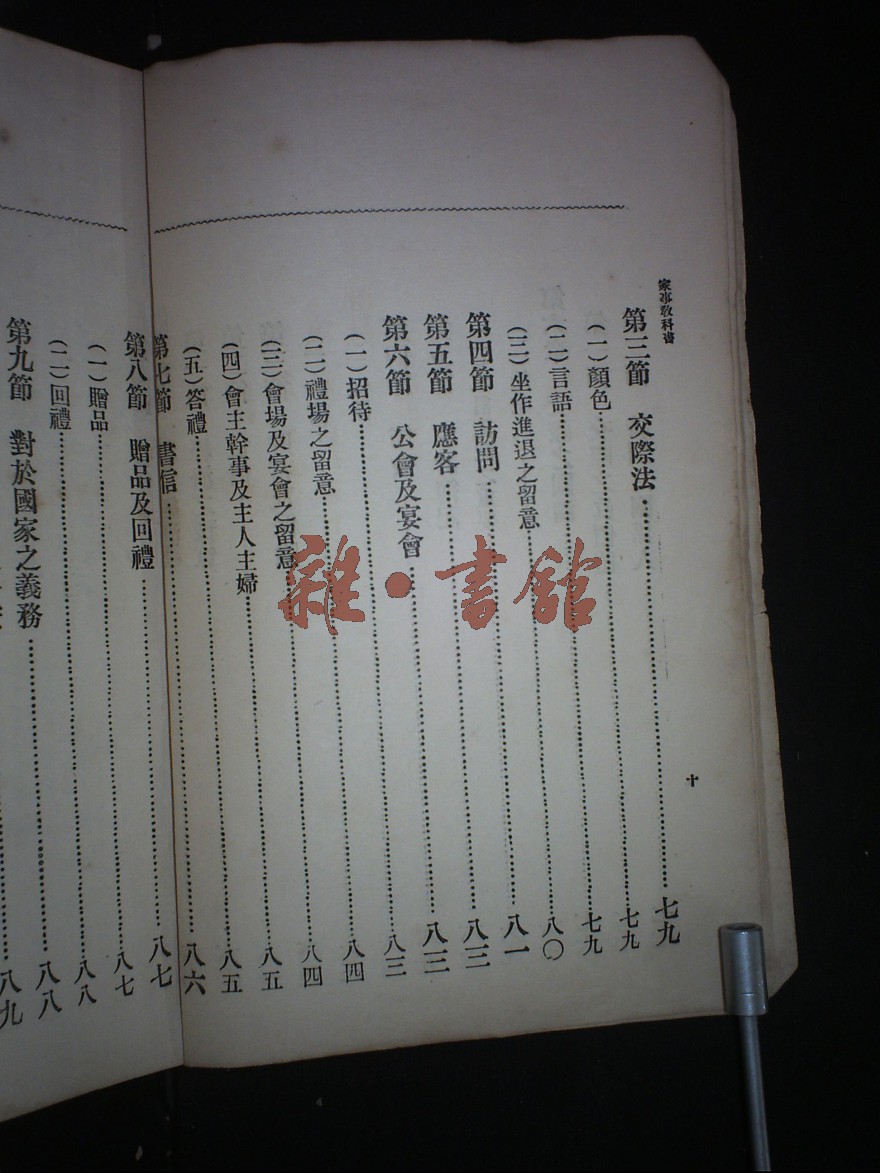 家事教科書
十
第三節 交際法……七九
(一)顏色……七九
(二)言語……七九
(三)坐作進退之留意……八〇
第四節 訪問……八一
第五節 應客……八三
第六節 公會及宴會……八三
(一)招待……八三
(二)禮場之留意……八四
(三)會場及宴會之留意……八四
(四)會主幹事及主人主婦……八五
(五)答禮……八五
第七節 書信……八六
第八節 贈品及回禮……八七
(一)贈品……八七
(二)回禮……八八
第九節 對於國家之義務……八八
八九
雜·書館